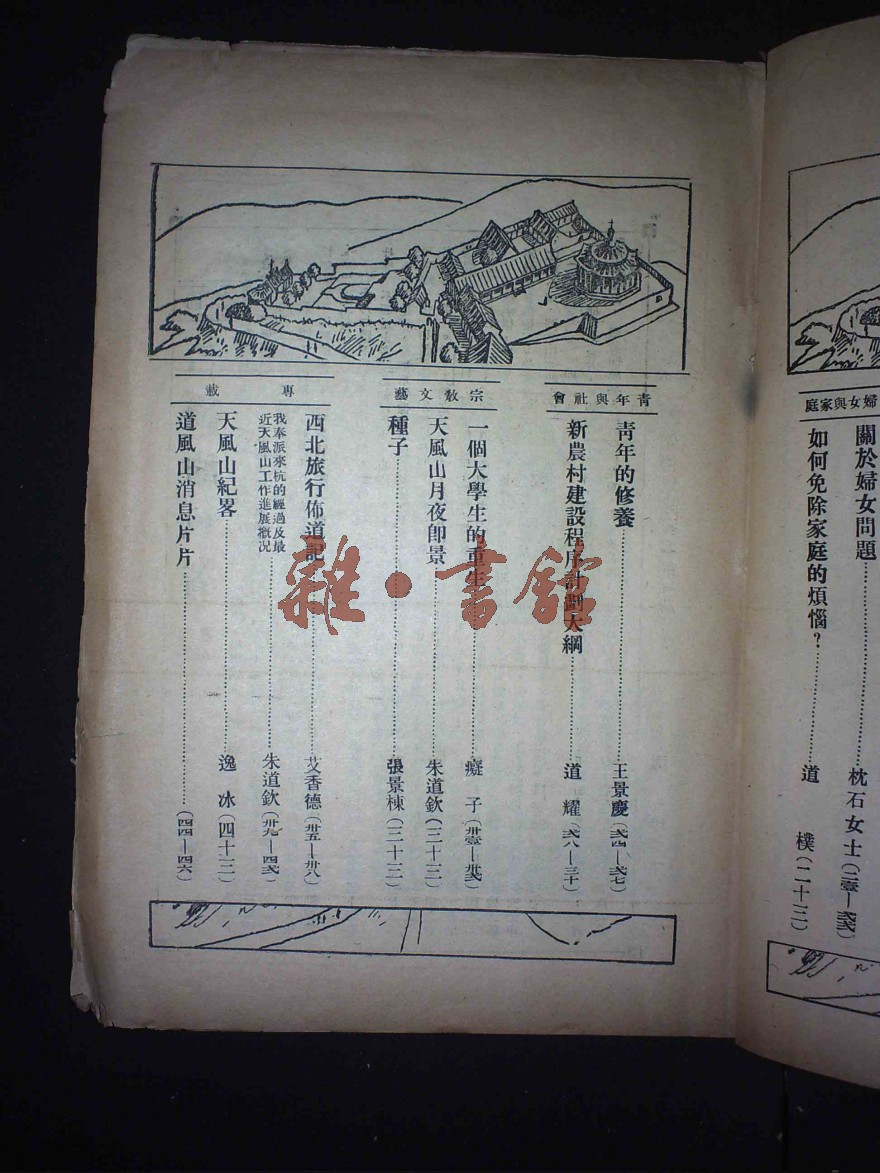 婦女與家庭
關於婦女問題 枕石女士
如何免除家庭的煩惱？ 道樸（二十三）
青年與社會
青年的修養 王景慶（弍四—弍七）
新農村建設程序計劃大綱 道耀（弍八—三十）
宗教文藝
一個大學生的重生 癡子
天風山月夜卽景 朱道欽（三十三）
種子 張景棟（三十三）
專載
西北旅行佈道記 艾香德（卅五—卅八）
我奉派來杭的經過及最
近天風山工作進展概况 朱道欽（卅九—四弍）
天風山紀畧 逸冰（四十三）
道風山消息片片（四四—四六）
雜·書館